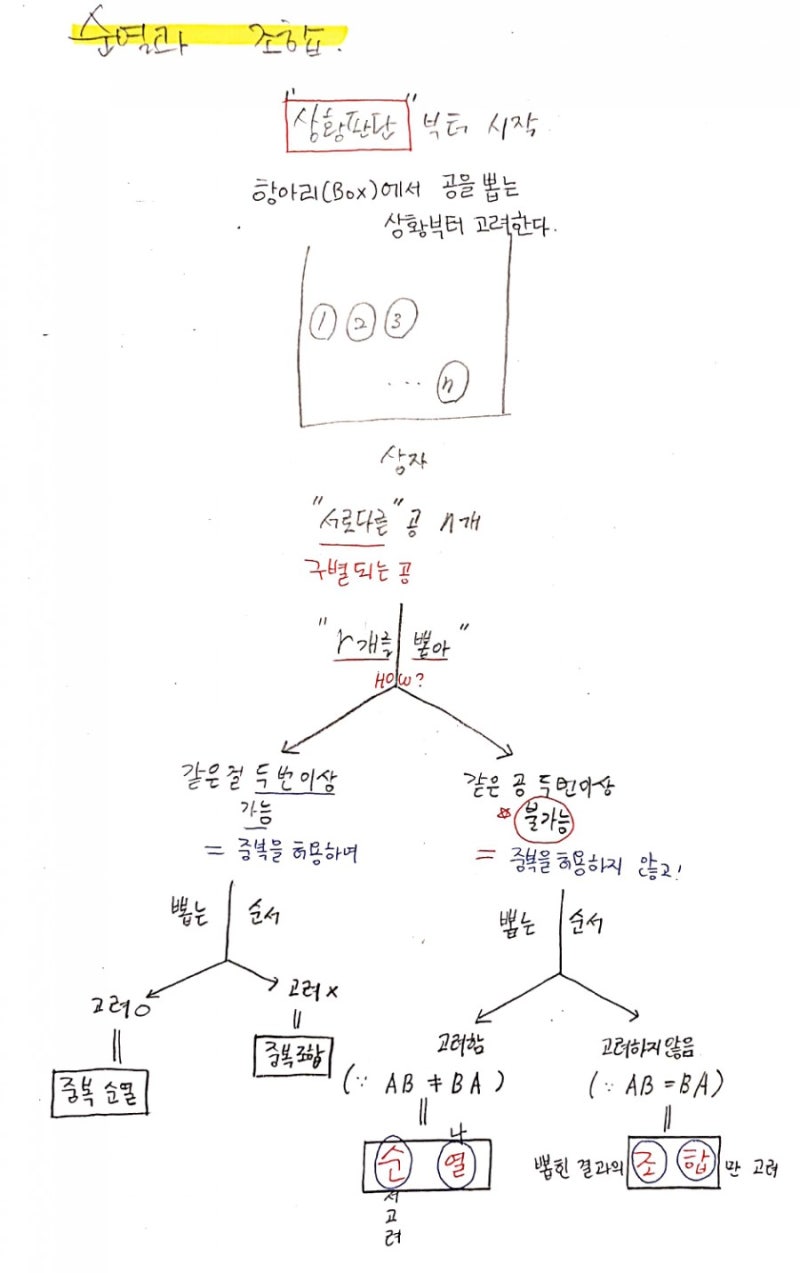 순열과 조합.
"상황판단" 부터 시작
항아리(Box)에서 공을 뽑는
상황부터 고려한다.
① ② ③
... ⓝ
상자
"서로다른" 공 n개
구별되는 공
"r개를 뽑아"
HOW?
같은걸 두번이상
가능
= 중복을 허용하며
같은 공 두번이상
불가능
= 중복을 허용하지 않고!
뽑는 순서
고려○
||
중복 순열
고려×
||
중복조합
뽑는 순서
고려함
(∵ AB ≠ BA)
||
순 열
서
고
려
나
고려하지않음
(∵ AB = BA)
||
뽑힌 결과의 조 합 만 고려